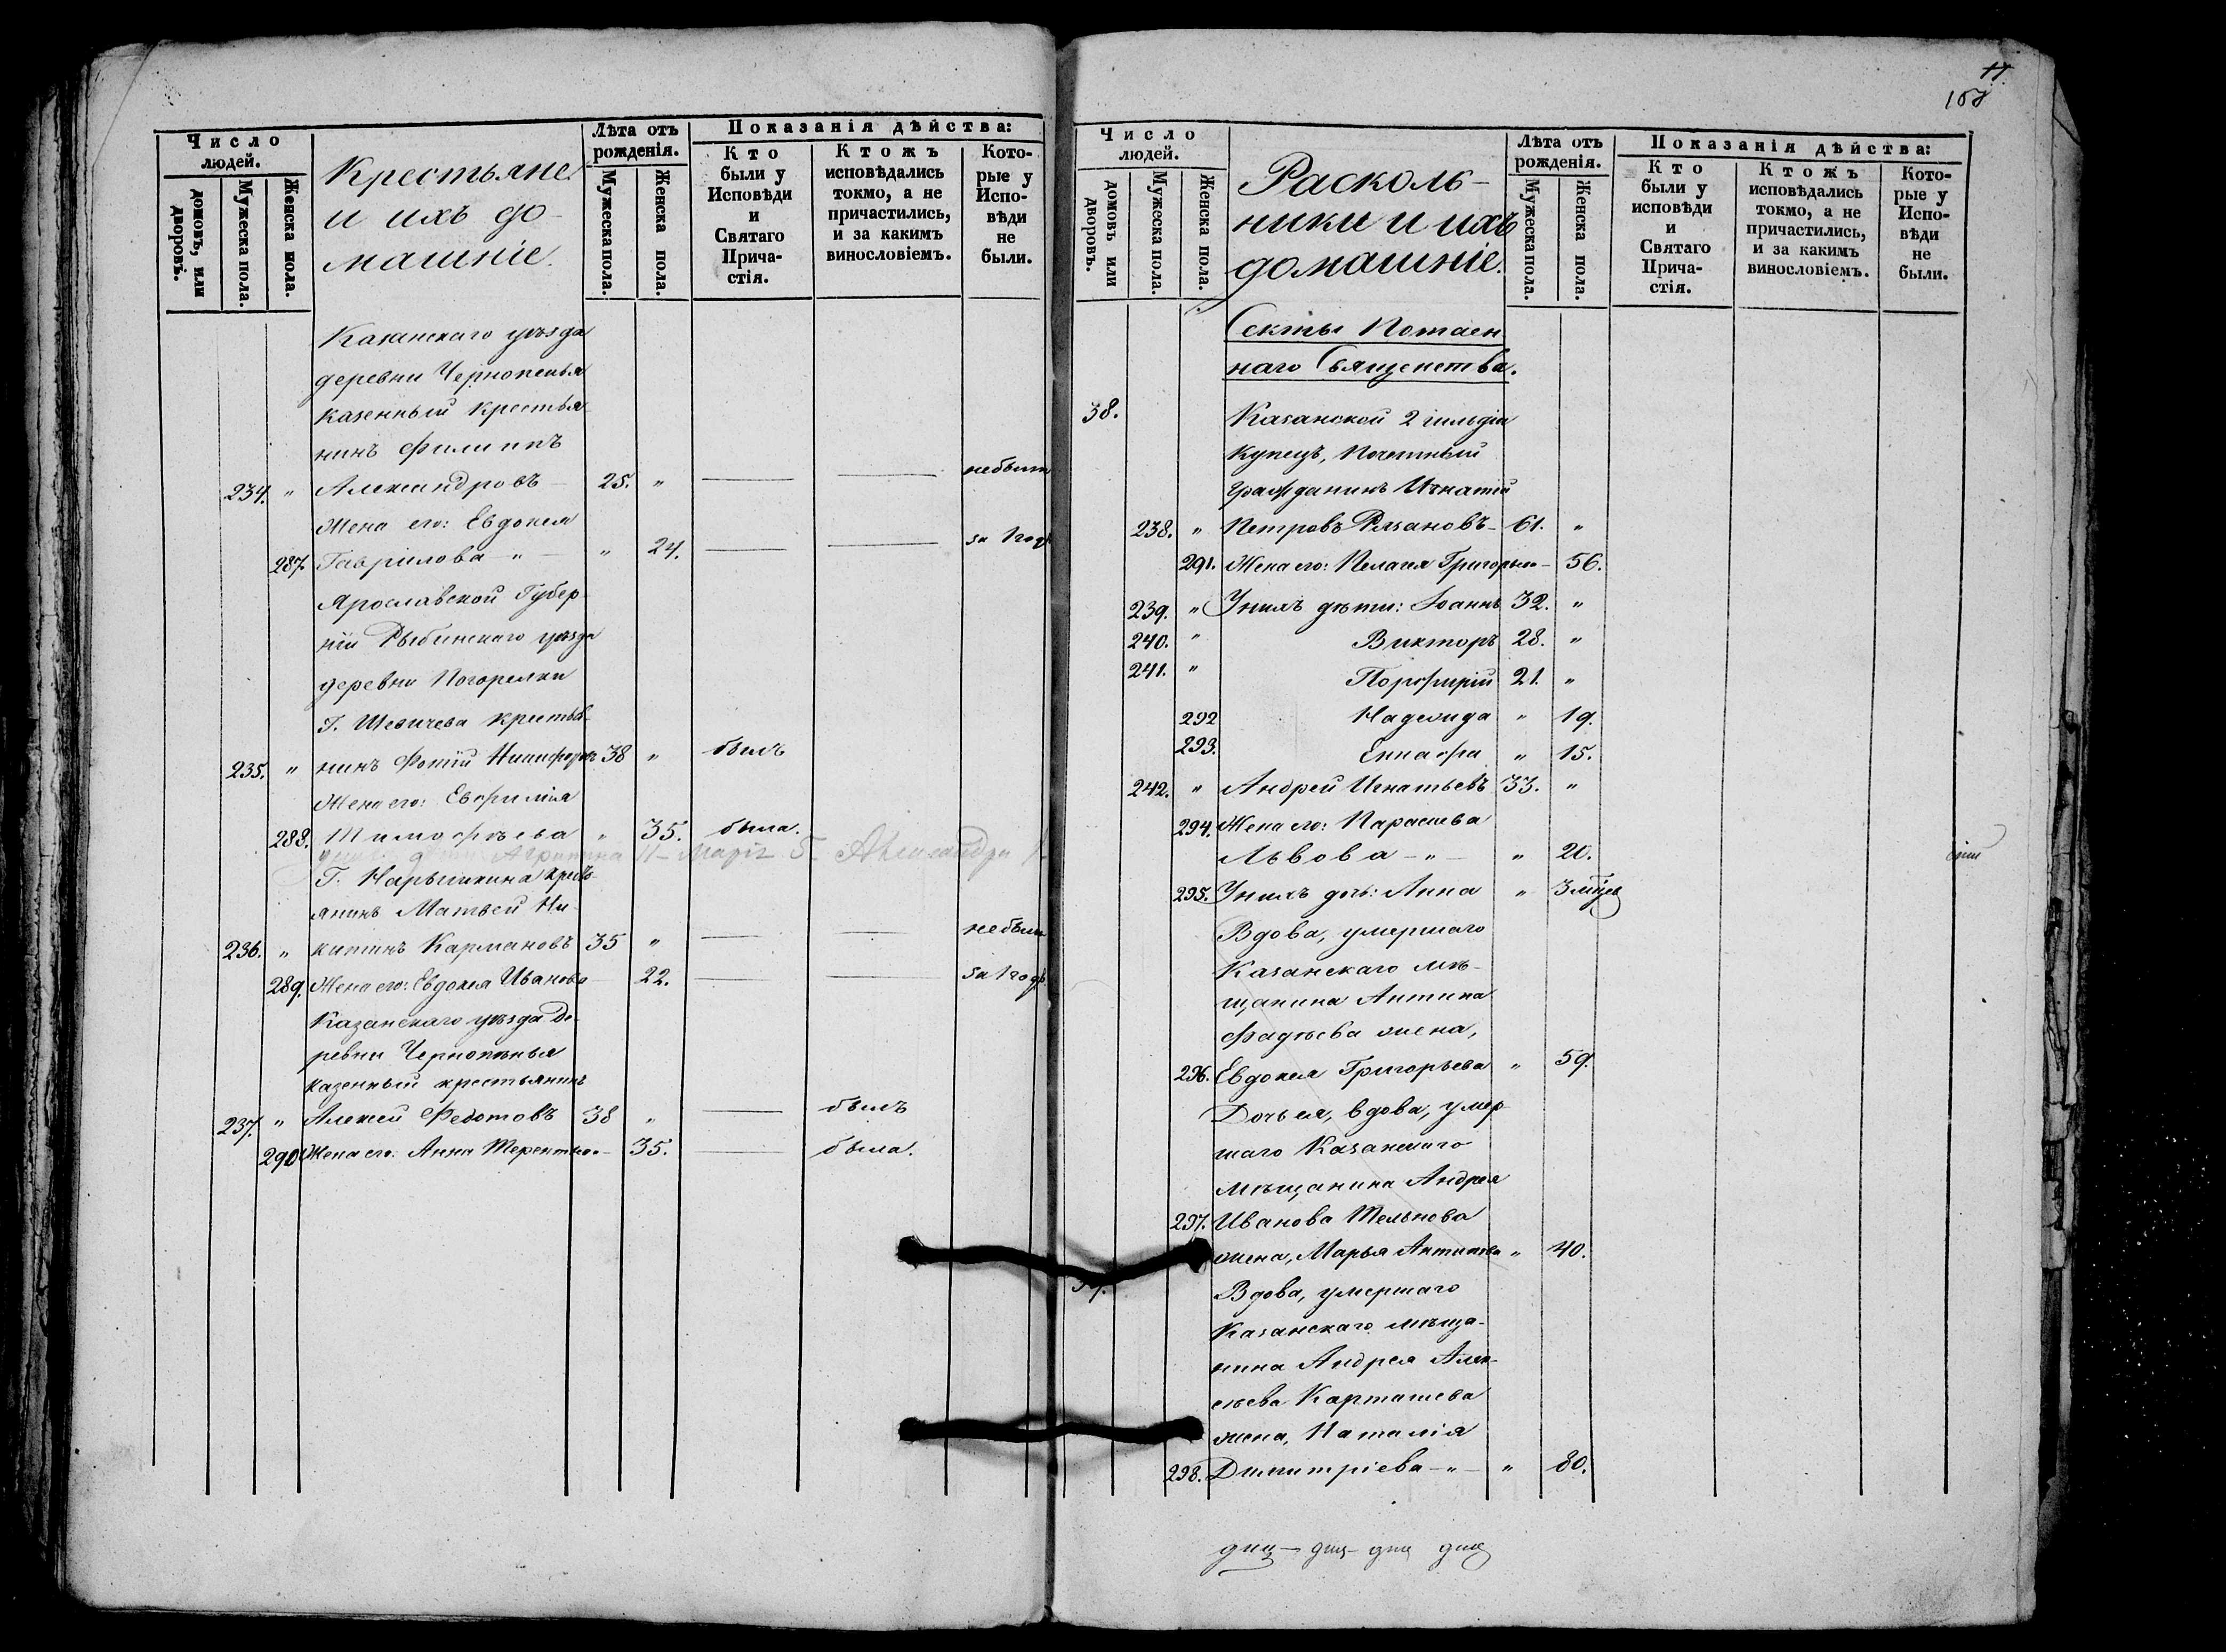 Число людей.
домовъ, или дворовъ.
Мужеска пола.
Женска пола.
Крестьяне
и ихъ до-
машніе.
Лѣта отъ рожденія.
Мужеска пола.
Женска пола.
Показанія дѣйства:
Кто были у Исповѣди и Святаго Прича-стія.
Ктожъ исповѣдались токмо, а не причастились, и за какимъ винословіемъ.
Кото-рые у Испо-вѣди не были.
Казанскаго уѣзда
деревни Чернопенья
казенный крестья-
нинъ Филиппъ
234. " Александровъ — 25. " — — небыли
Жена его: Евдокея
287. Гаврилова — " — " 24. — — за 1 годъ
Ярославской Губер-
ніи Рыбинскаго уѣзда
деревни Погорелки
Г. Шевичева крестья-
235. " нинъ Фотій Никифоровъ 38 " былъ
Жена его: Евфимія
288. Тимофѣева " 35. была.
Агрипина 11 — Марія 5. Александра
Г. Нарышкина крест-
янинъ Матвей Ни-
236. " китинъ Кармановъ 35 " — — небыли
289. Жена его: Евдокея Иванова 22. — — за 1 годъ
Казанскаго уѣзда де-
ревни Чернопенья
казенный крестьянинъ
237. " Алексей Федотовъ 38 " — былъ
290. Жена его: Анна Терентьева — 35. — была.
17
168
Число людей.
домовъ или дворовъ.
Мужеска пола.
Женска пола.
Расколь-
ники и ихъ
домашніе.
Лѣта отъ рожденія.
Мужеска пола.
Женска пола.
Показанія дѣйства:
Кто были у исповѣди и Святаго Прича-стія.
Ктожъ исповѣдались токмо, а не причастились, и за какимъ винословіемъ.
Кото-рые у Испо-вѣди не были.
Секты Потаен
наго Священства.
38. Казанской 2 гильдіи
купецъ, Почетный
Гражданинъ Игнатій
238. " Петровъ Рязановъ — 61. "
291. Жена его: Пелагея Григорьева — 56.
239. " У нихъ дѣти: Іоаннъ 32. "
240. " Викторъ 28. "
241. " Порфирій 21. "
292 Надежда " 19.
293. Еннафа " 15.
242. " Андрей Игнатьевъ 33. "
294. Жена его: Парасева
Львова — " — " 20.
295. У нихъ дочь: Анна " 3 мѣсяц
Вдова, умершаго
Казанскаго мѣ-
щанина Антипа
Фадѣева жена,
296. Евдокея Григорьева " 59.
Дочь ея, вдова, умер-
шаго Казанскаго
мѣщанина Андрея
297. Иванова Тельнова
жена, Марья Антипова " 40.
39. Вдова, умершаго
Казанскаго мѣща-
нина Андрея Алек-
сѣева Карташева
жена, Наталія
298. Димитріева — " — " 80.